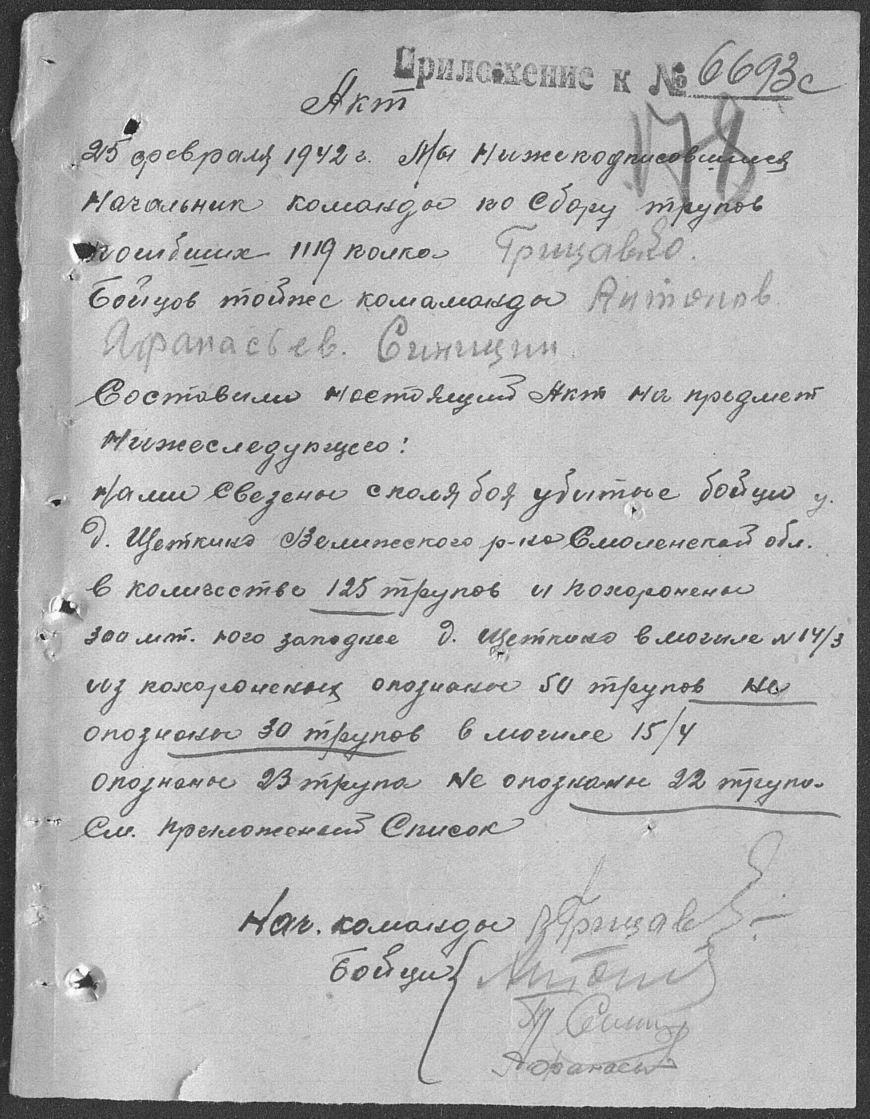 Приложение к № 6693с
Акт
178
25 февраля 1942 г. Мы Нижеподписовшиеся
Начальник команды по сбору трупов
погибших 1119 полка Грищавко.
Бойцов тойже комаманды Антонов
Афанасьев. Синицин.
Составили настоящий Акт на предмет
Нижеследующего:
Нами Свезены с поля боя убитые бойцы у.
д. Щеткино Велижского р-на Смоленской обл.
в количестве 125 трупов и похоронены
300 мт. юго западнее д. Щеткино в могиле N 14/3
из похороненых опознаны 50 трупов Не
опознаны 30 трупов в могиле 15/4
опознаны 23 трупа Не опознаны 22 трупа.
См. приложеный Список
Нач. команды Грищав
Бойцы Антон
Синиц
Афанасьев